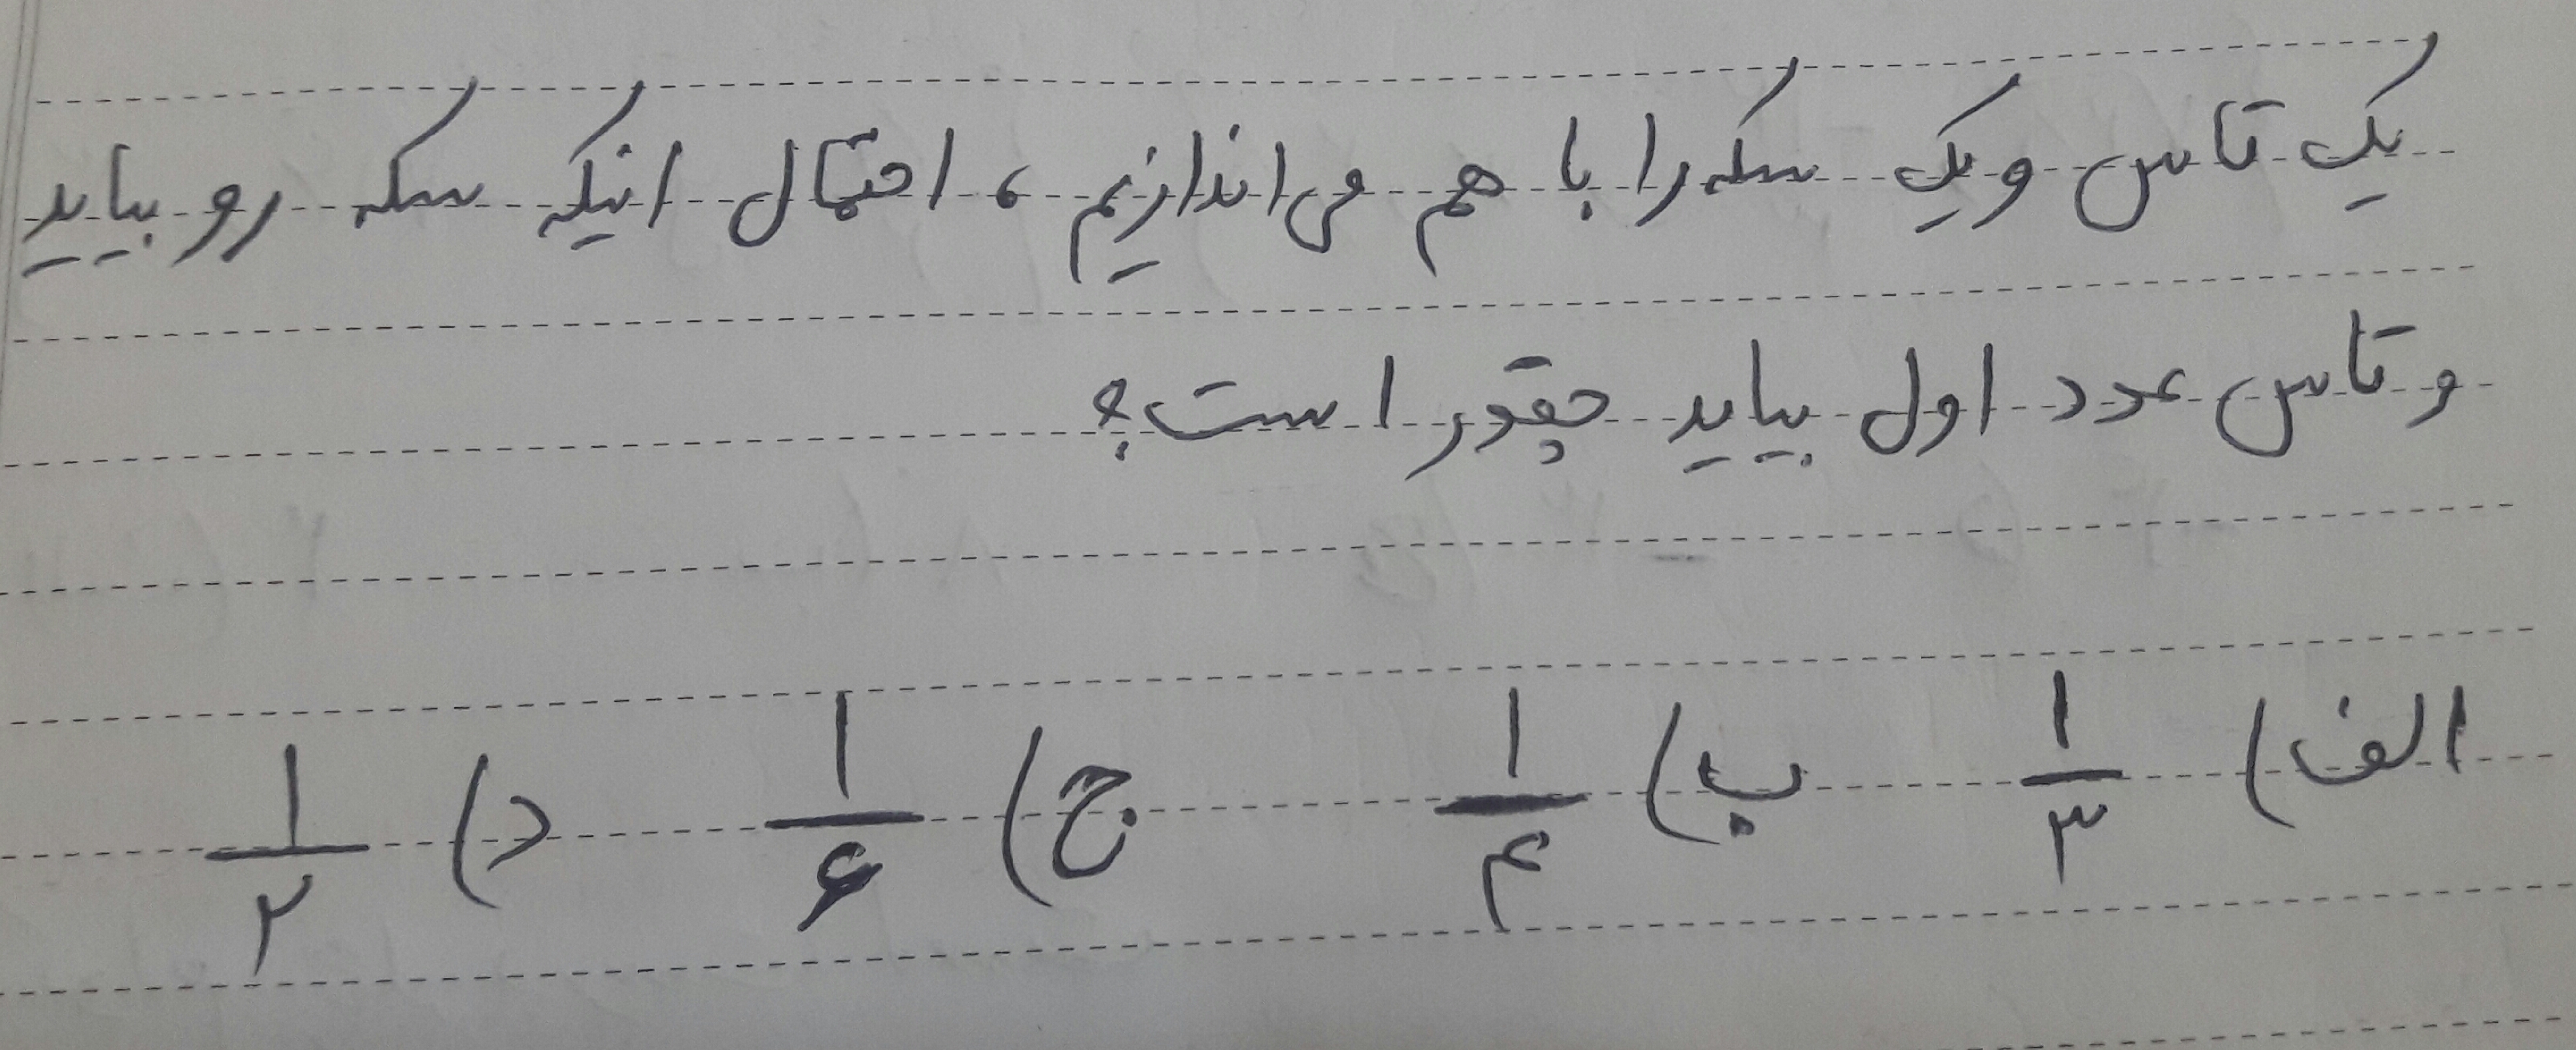 یک تاس و یک سکه را با هم می‌اندازیم ، احتمال اینکه سکه رو بیاید
و تاس عدد اول بیاید چقدر است؟
الف) ۱/۳ ب) ۱/۴ ج) ۱/۶ د) ۱/۲